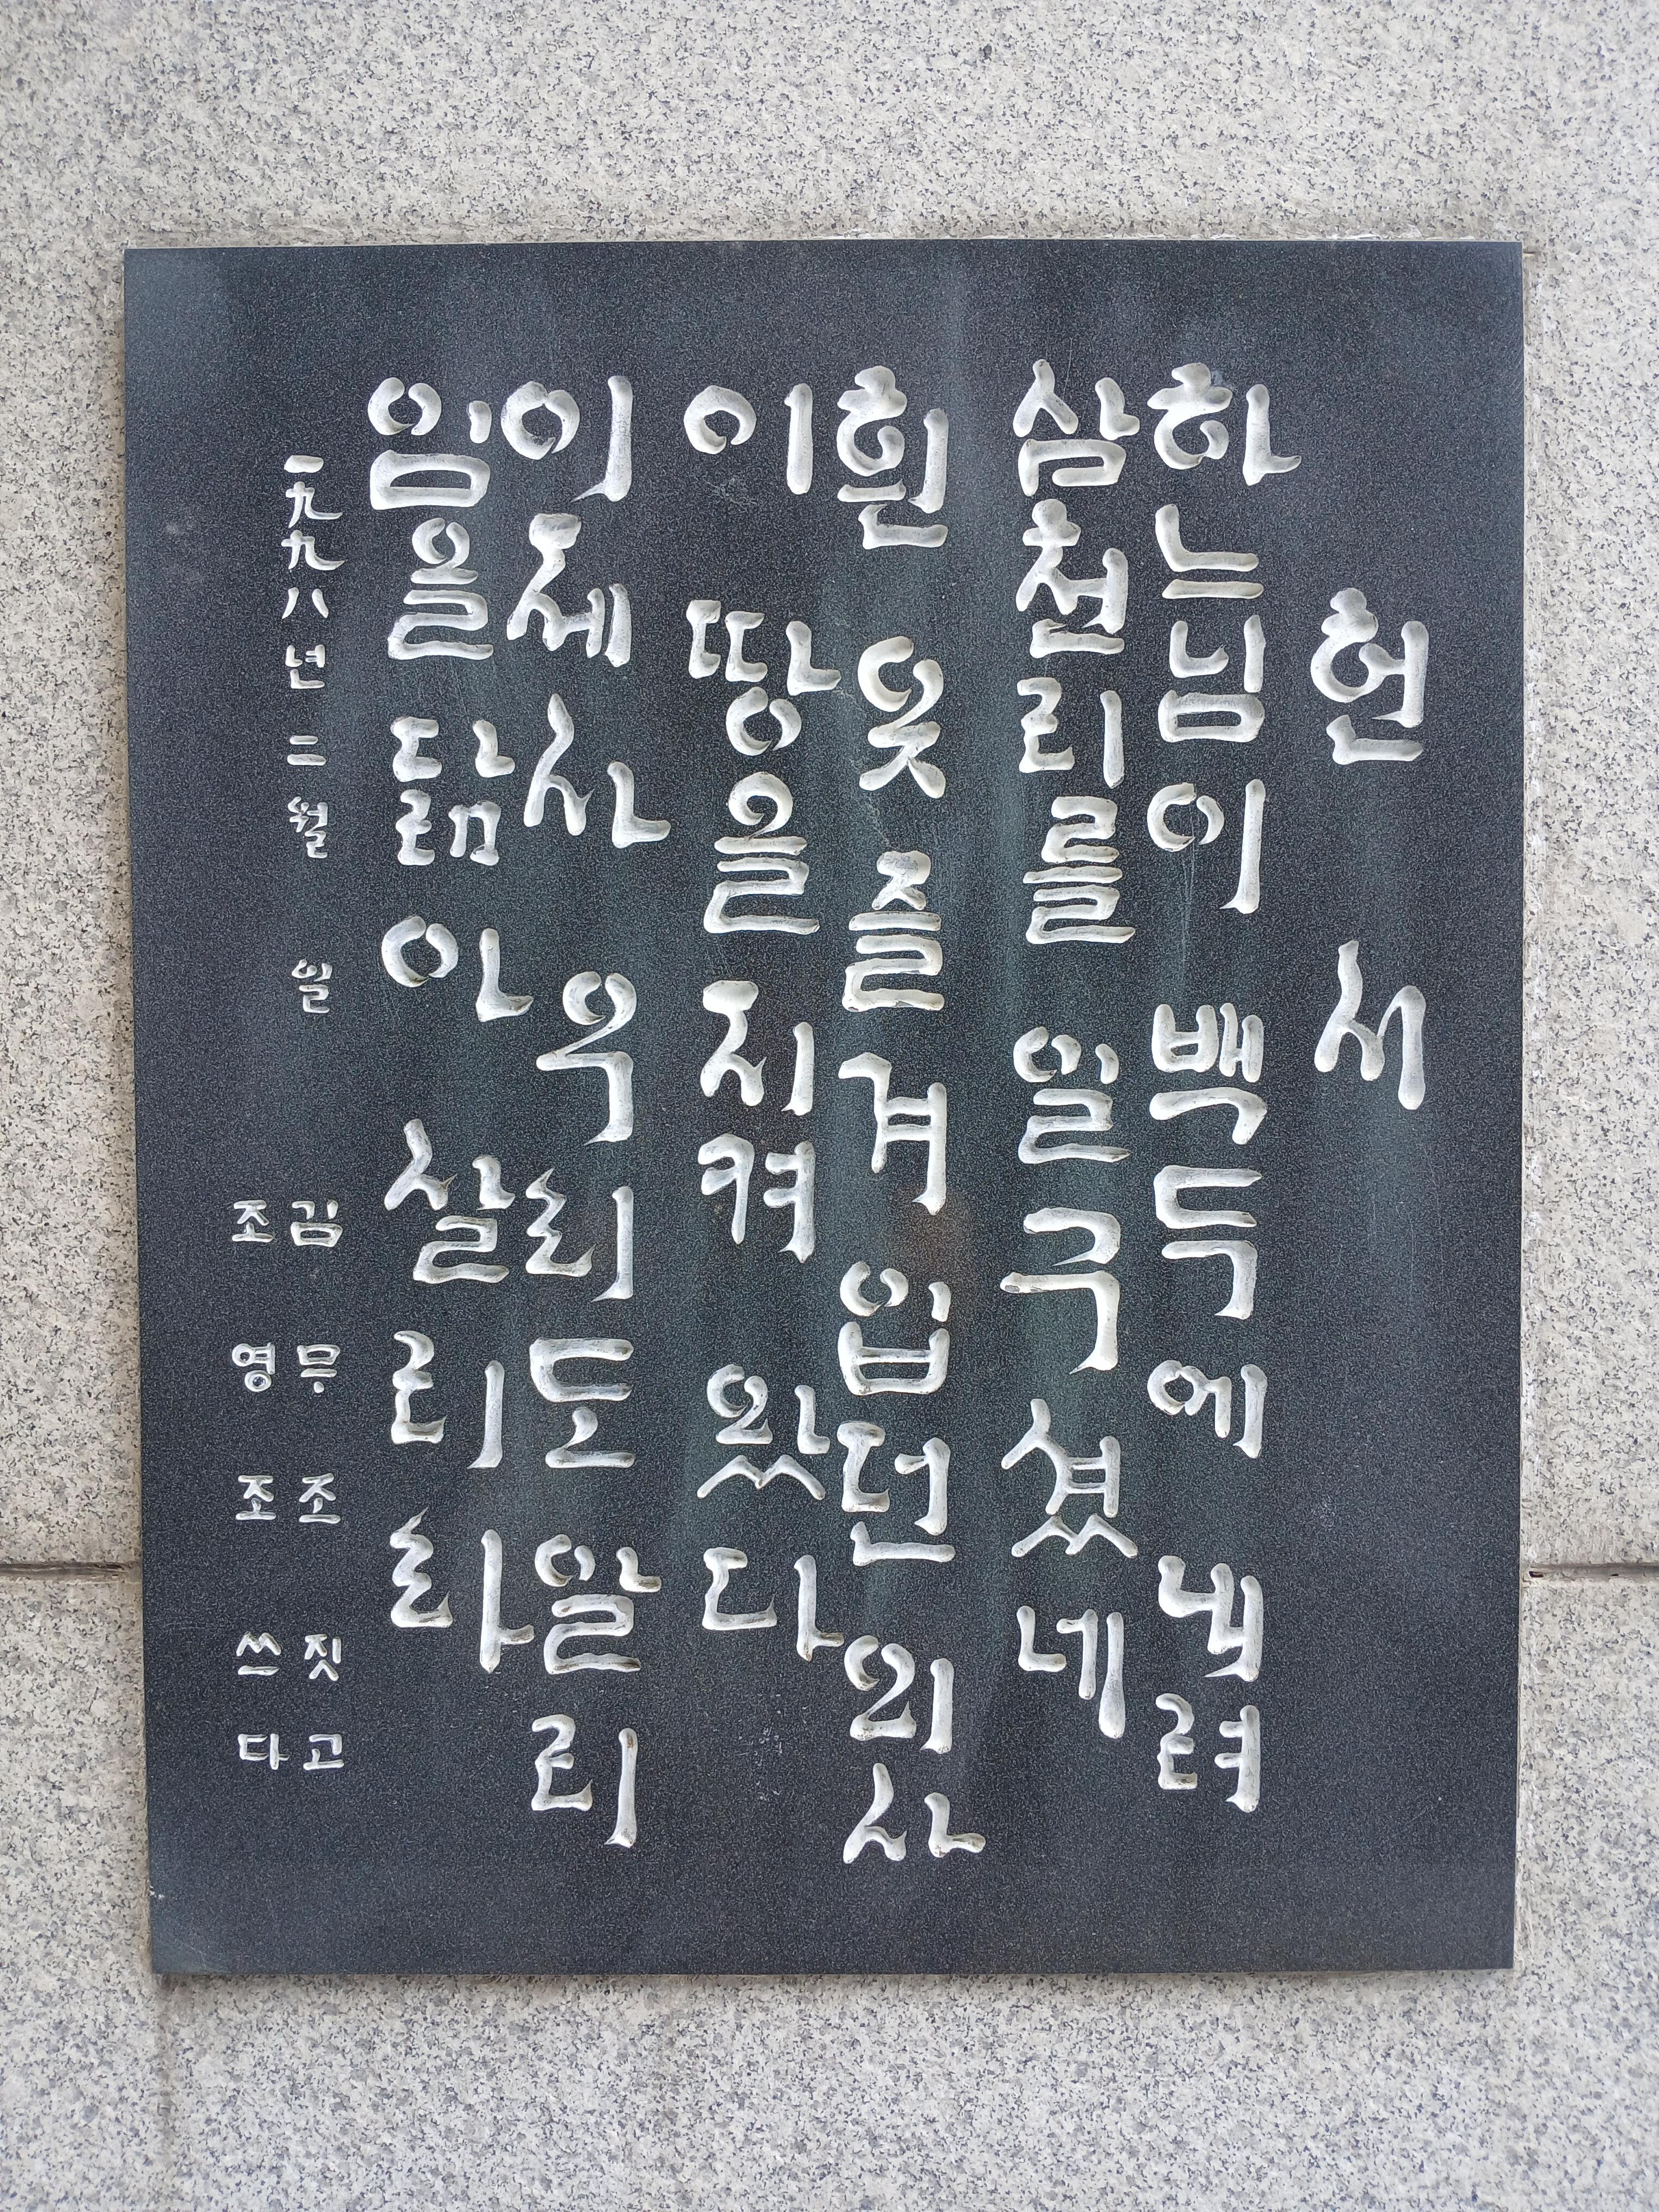 헌 서
하느님이 백두에 내려
삼천리를 일구셨네
흰 옷 즐겨 입던 외사
이 땅을 지켜 왔다
이제사 우리도 알리
임을 닮아 살리라
一九九八년 二월 일
김무조 짓고
조영조 쓰다